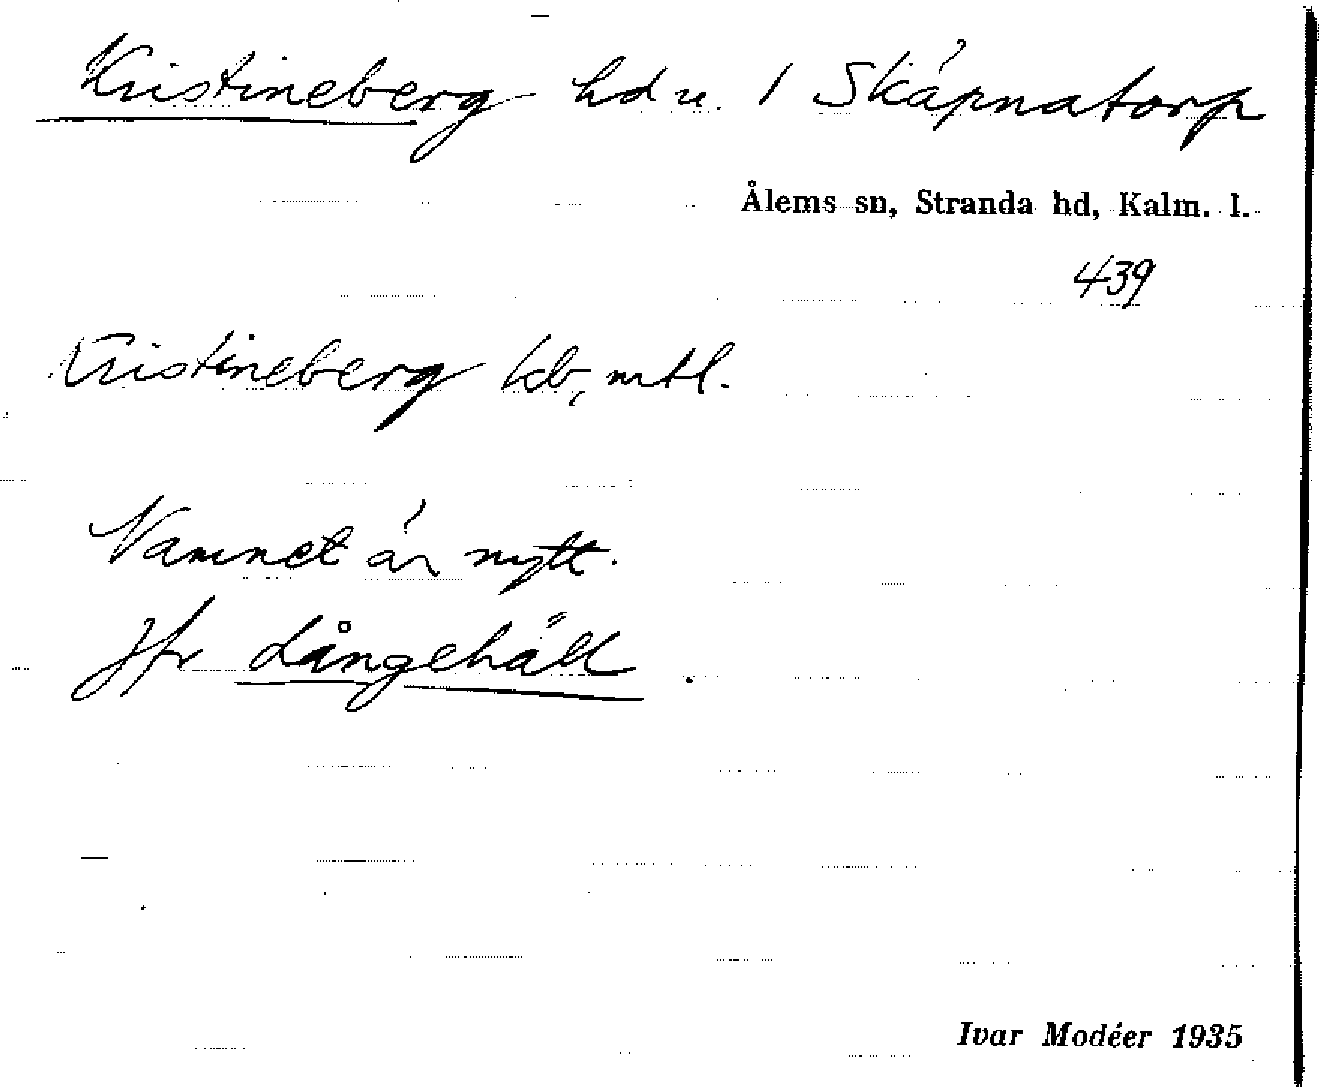 Kristineberg hd u. 1 Skäpnatorp
Ålems sn, Stranda hd, Kalm. l.
439
Kristineberg kb, mtl.
Namnet är nytt.
Jfr Långehäll.
Ivar Modéer 1935